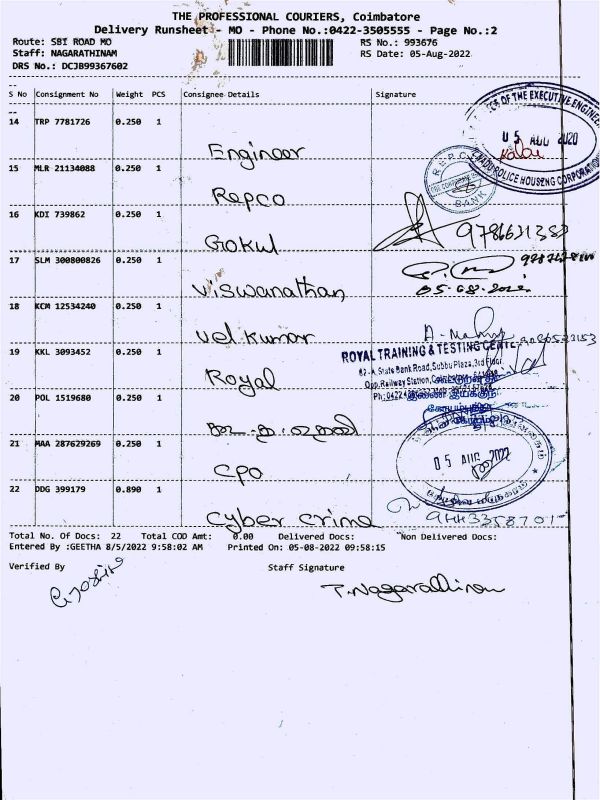 THE PROFESSIONAL COURIERS, Coimbatore
Delivery Runsheet - MO - Phone No.:0422-3505555 - Page No.:2
Route: SBI ROAD MO
RS No.: 993676
Staff: NAGARATHINAM
RS Date: 05-Aug-2022
DRS No.: DCJB99367602
S No Consignment No Weight PCS Consignee Details Signature
14 TRP 7781726 0.250 1
Engineer
OFFICE OF THE EXECUTIVE ENGINEER
05 AUG 2020
POLICE HOUSING CORPORATION
15 MLR 21134088 0.250 1
Repco
REPCO
BANK
16 KDI 739862 0.250 1
Gokul
17 SLM 300800826 0.250 1
Viswanathan
05-08-2022
18 KCM 12534240 0.250 1
Vel kumar
19 KKL 3093452 0.250 1
Royal
ROYAL TRAINING & TESTING CENTRE
62-A, State Bank Road, Subbu Plaza, 3rd Floor,
Opp. Railway Station,
20 POL 1519680 0.250 1
21 MAA 287629269 0.250 1
CPO
05 AUG 2022
22 DDG 399179 0.890 1
Cyber crime
Total No. Of Docs: 22 Total COD Amt: 0.00 Delivered Docs: Non Delivered Docs:
Entered By :GEETHA 8/5/2022 9:58:02 AM Printed On: 05-08-2022 09:58:15
Verified By Staff Signature
T.Nagarathinam